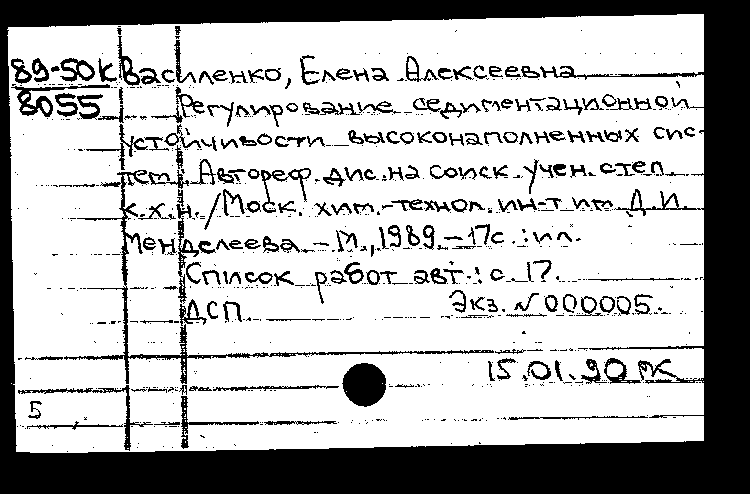 89-50К Василенко, Елена Алексеевна
8055 Регулирование седиментационной
устойчивости высоконаполненных сис-
тем: Автореф. дис. на соиск. учен. степ.
к.х.н. / Моск. хим.-технол. ин-т им. Д.И.
Менделеева. - М., 1989. - 17с.: ил.
Список работ авт.: с. 17.
ДСП. Экз. N 000005.
15.01.90 РК
5